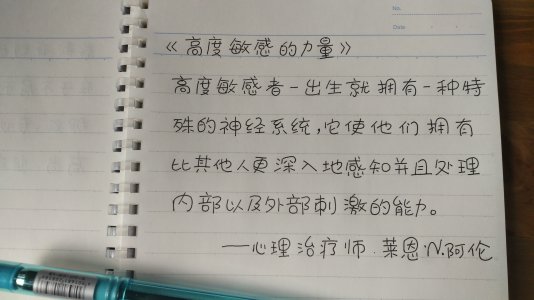 No.
Date
《高度敏感的力量》
高度敏感者一出生就拥有一种特
殊的神经系统,它使他们拥有
比其他人更深入地感知并且处理
内部以及外部刺激的能力。
——心理治疗师.莱恩·N.阿伦